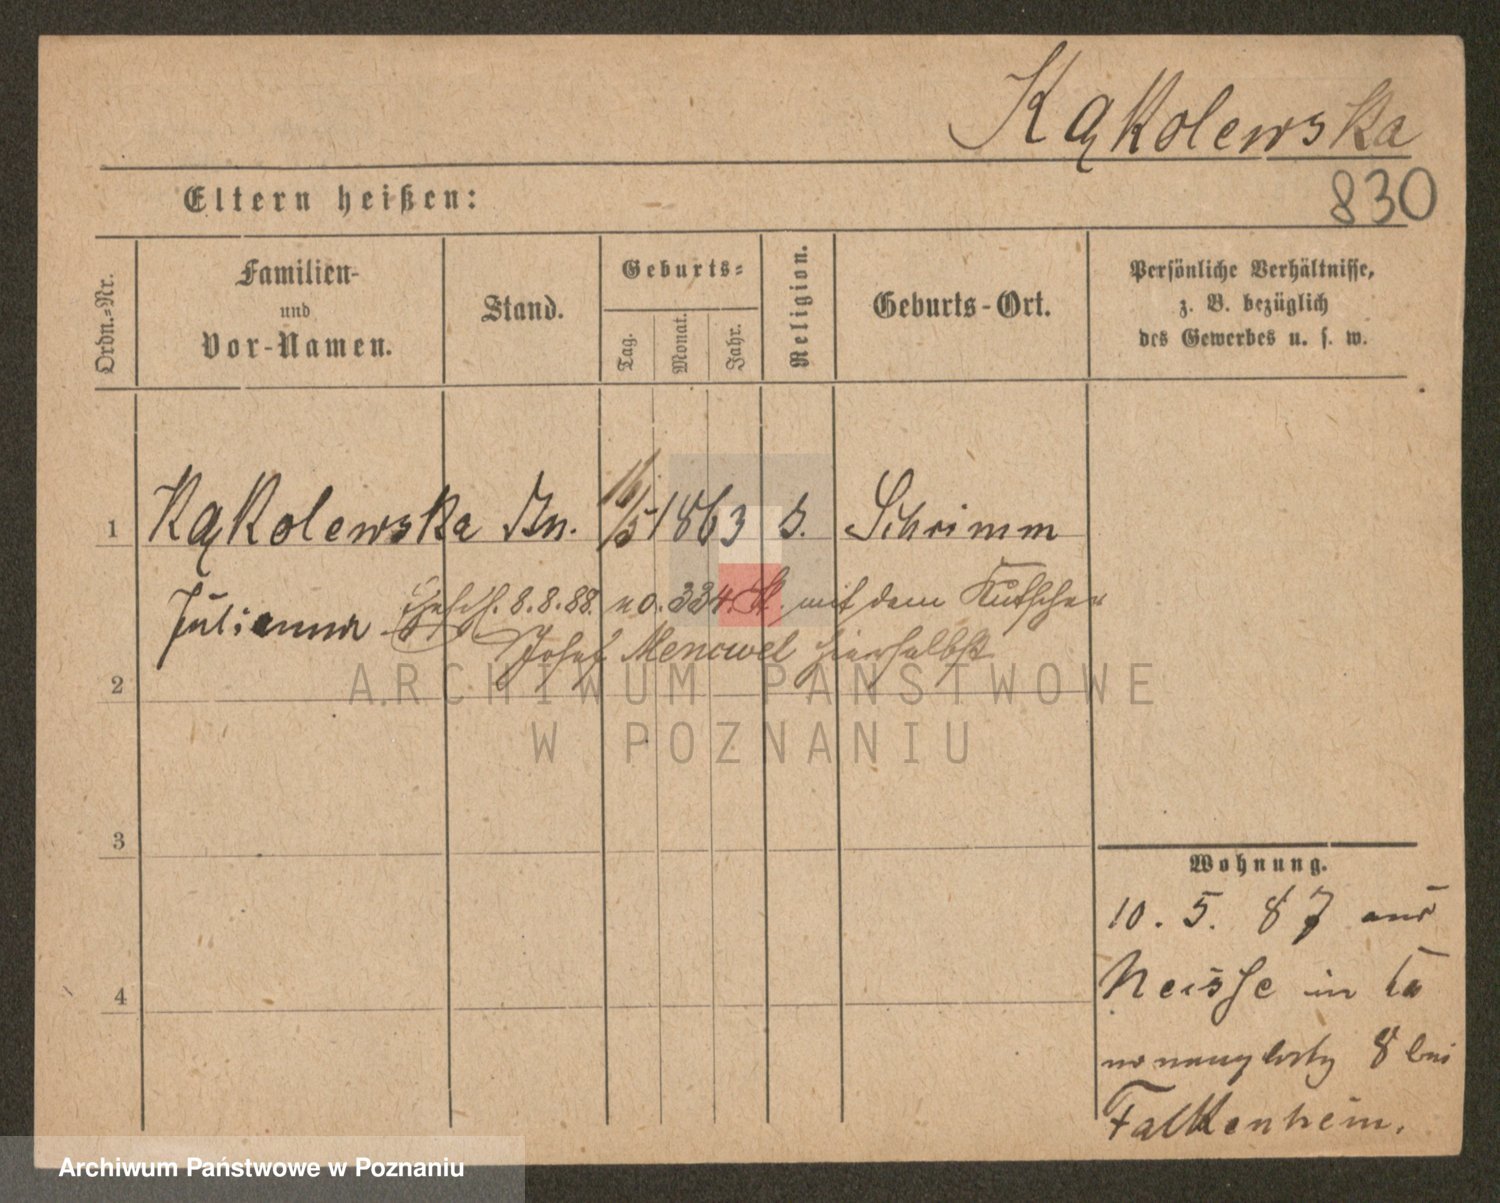 Kąkolewska
830
Eltern heißen:
Ordn.-Nr.
Familien-
und
Vor-Namen.
Stand.
Geburts-
Tag.
Monat.
Jahr.
Religion.
Geburts-Ort.
Persönliche Verhältnisse,
z. B. bezüglich
des Gewerbes u. s. w.
1 Kąkolewska 16/5 1863 Schrimm
Julianna 8.8.88. no. 334 mit dem Kutscher
Josef Mencwel hierselbst
2
3
4
Wohnung.
10. 5. 87 aus
Neisse in Ka
nonenplatz 8 bei
Falkenheim.
ARCHIWUM PAŃSTWOWE
W POZNANIU
Archiwum Państwowe w Poznaniu